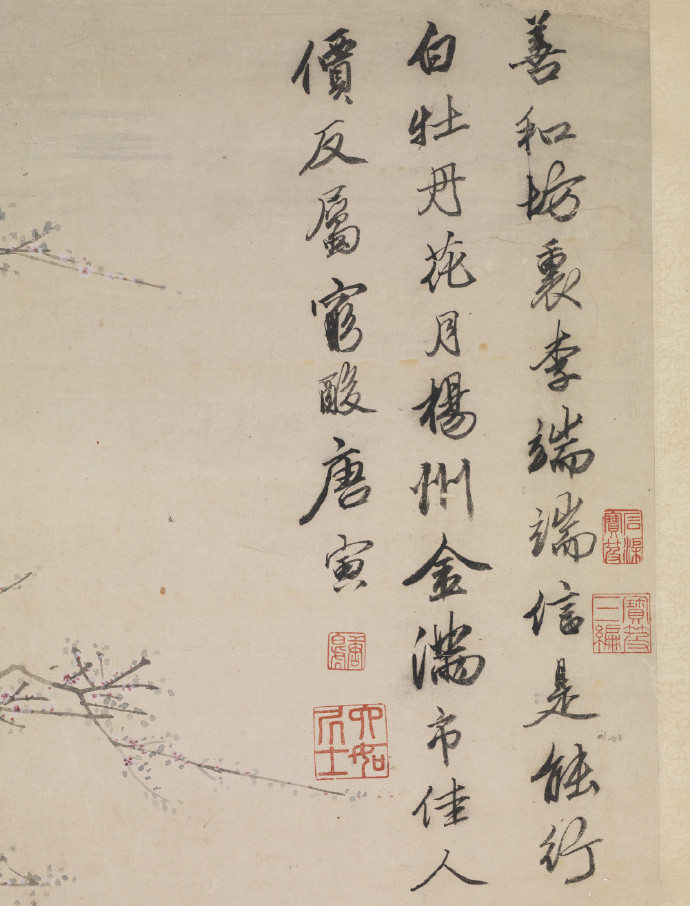 善和坊裏李端端信是能行
白牡丹花月楊州金滿市佳人
價反屬窮酸唐寅
六如居士
石渠寶笈
寶笈三編